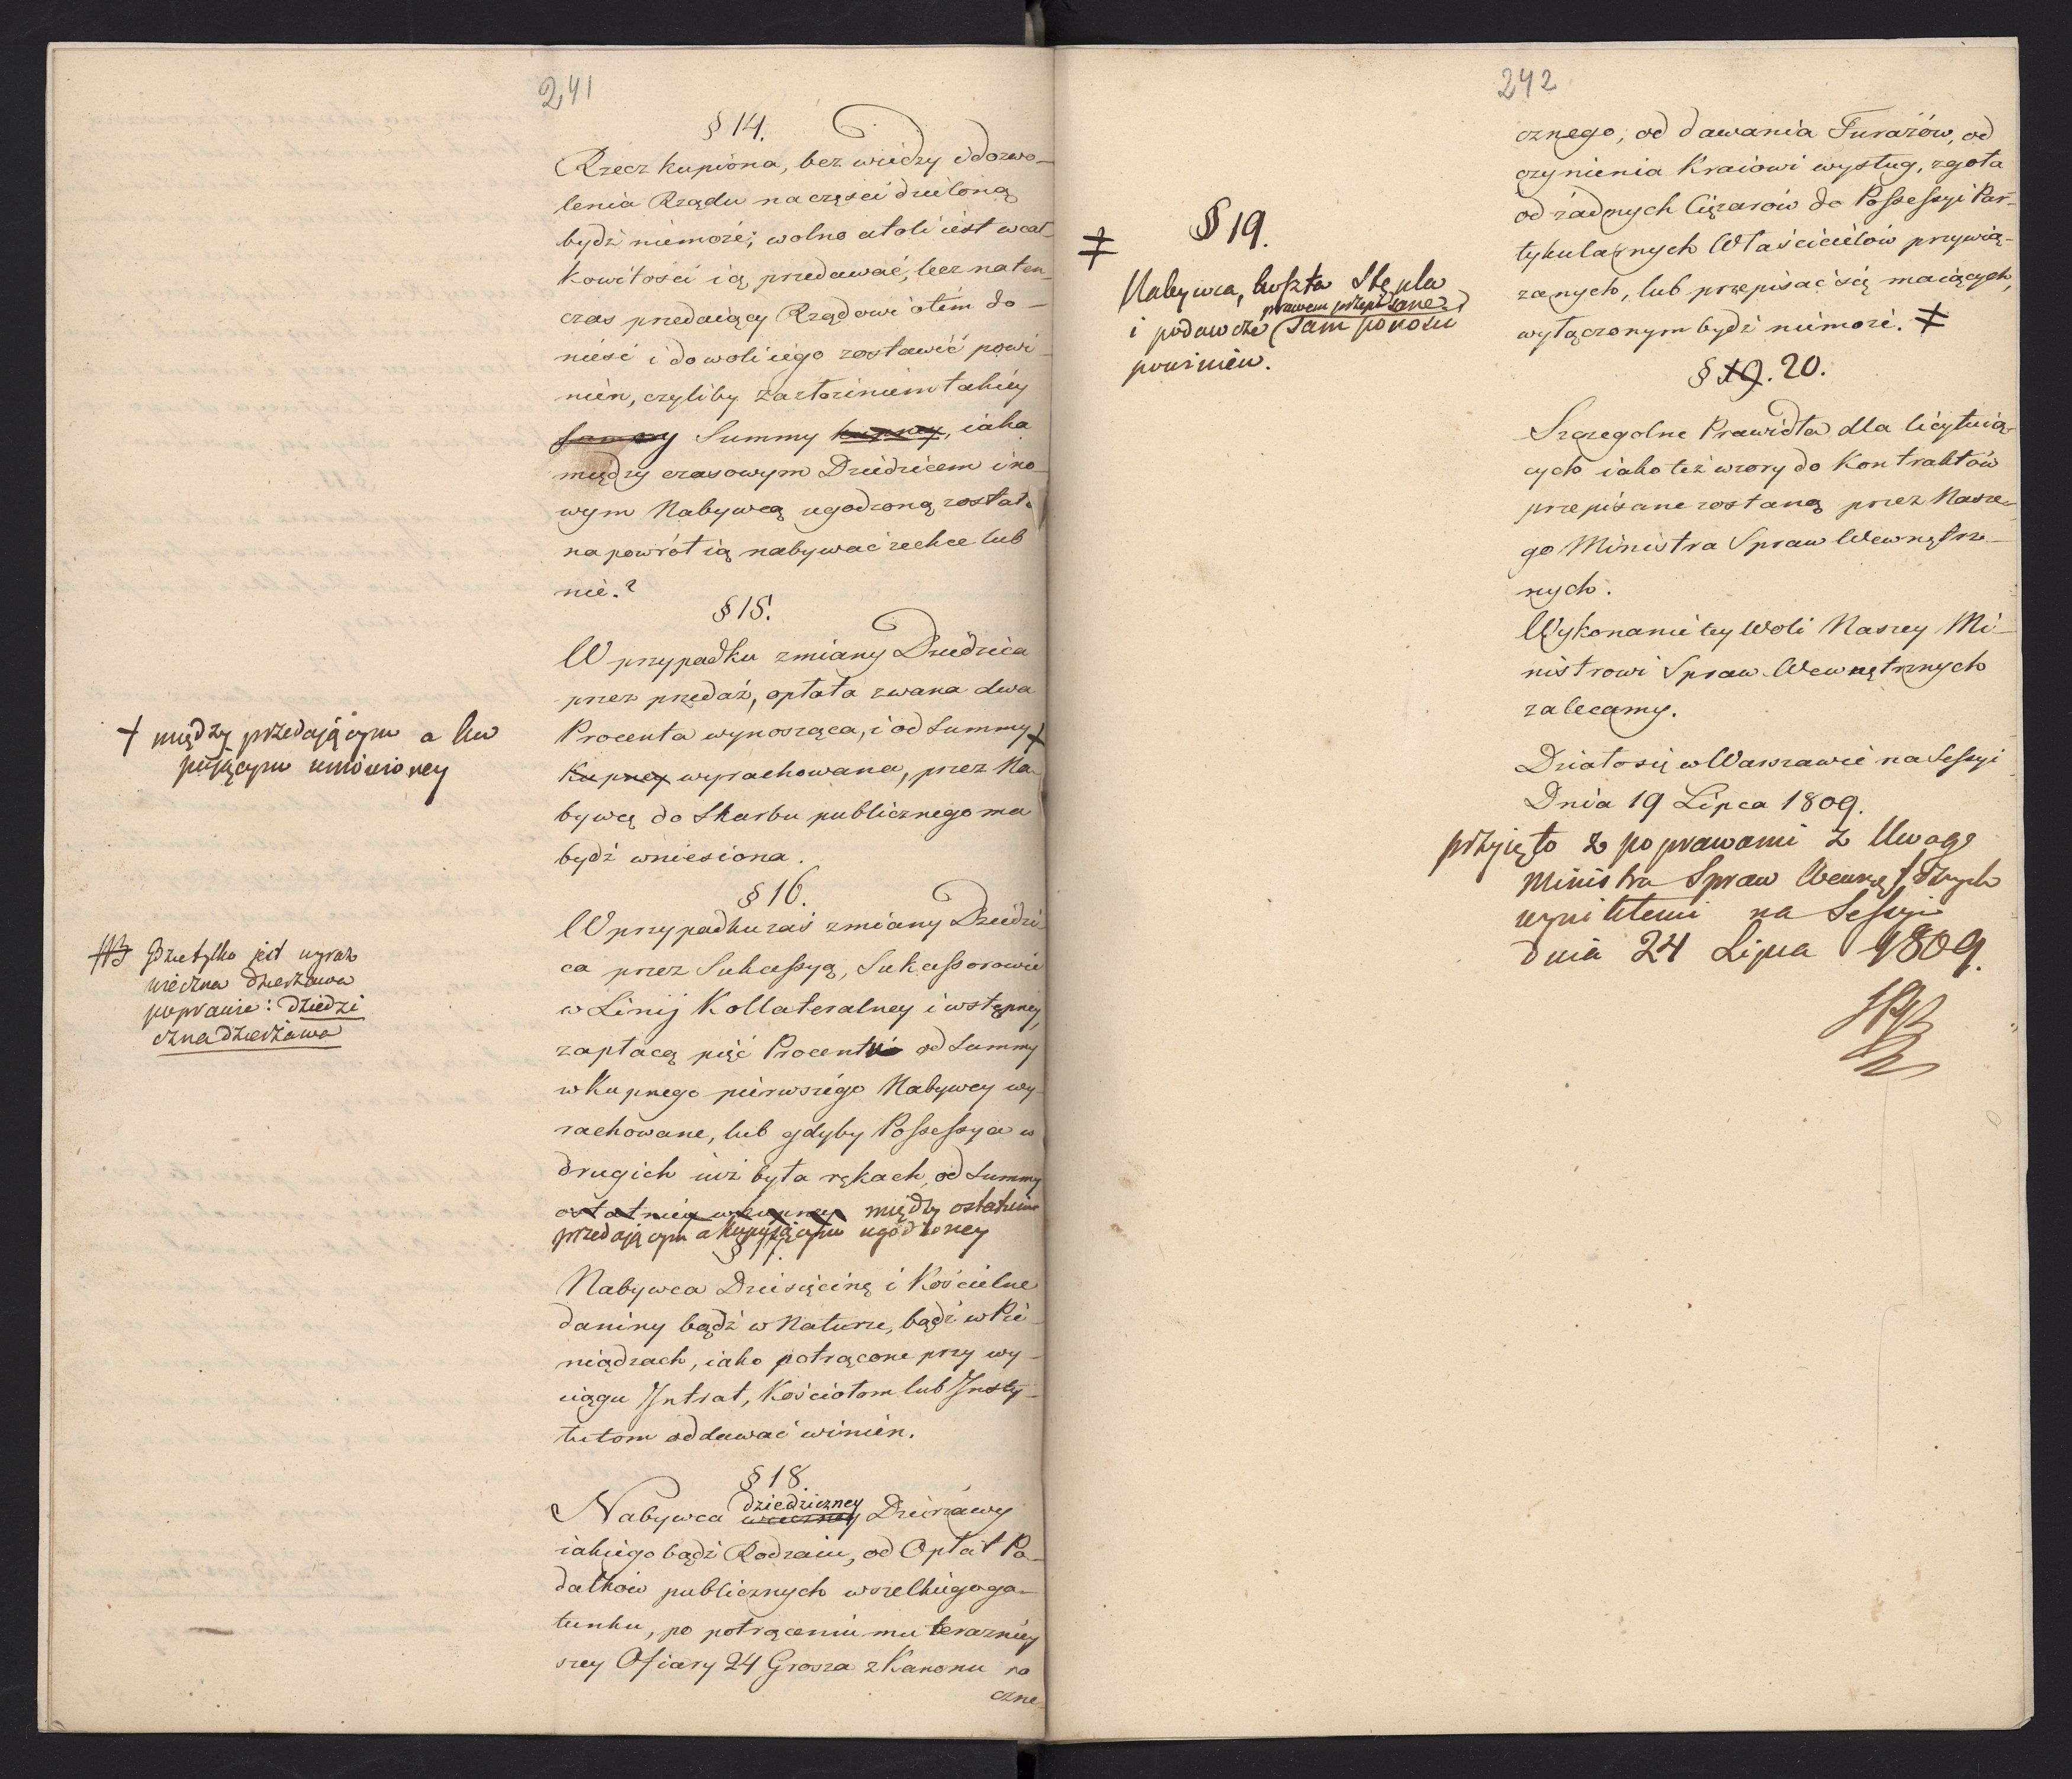 241
§ 14.
Rzecz kupiona, bez wiedzy i dozwo-
lenia Rządu na części dzieloną
bydź niemoże; wolno atoli iest w cał-
kowitości ią przedawać, lecz naten-
czas przedaiący Rządowi o tém do-
nieść i do woli iego zostawić powi-
nien, czyliby za złożeniem takiey
Summy kupney, iaka
między czasowym Dziedzicem i no-
wym Nabywcą ugodzoną została
na powrót ią nabywać zechce lub
nie.?
§ 15.
W przypadku zmiany Dziedzica
przez przedaż, opłata zwana dwa
Procenta wynosząca, i od Summy +
Kupney wyrachowana, przez Na-
bywcę do Skarbu publicznego ma
bydź wniesiona.
+ między przedającym a ku
pującym umówioney
§ 16.
W przypadku zaś zmiany Dziedzi-
ca przez Sukcessyą, Sukcessorowie
w Linij Kollateralney i wstępney,
zapłacą pięć Procentu od Summy
wkupnego pierwszego Nabywcy wy-
rachowane, lub gdyby Possessya w
drugich iuż była rękach, od Summy
ostatniey wkupney między ostatnim
przedającym a kupującym ugodzoney
NB Gdzie tylko jest wyraz
wieczna dzierżawa
poprawić: dziedzi
czna dzierżawa
§ 17.
Nabywca Dziesięcinę i Kościelne
daniny bądź w Naturze, bądź w Pie-
niądzach, iako potrącone przy wy-
ciągu Intrat, Kościołom lub Insty-
tutom oddawać winien.
§ 18.
dziedziczney
Nabywca wieczney Dzierżawy
iakiego bądź Rodzaiu, od Opłat Po-
datków publicznych wszelkiego ga-
tunku, po potrąceniu mu terazniey
szey Ofiary 24 Grosza z Kanonu ro
czne-
242
cznego, od dawania Furażów, od
czynienia Kraiowi wysług, zgoła
od żadnych Ciężarów do Possessyi Par-
tykularnych Właścicielów przywią-
zanych, lub przepisać się maiących,
wyłączonym bydź niemoże. ‡
‡ § 19.
Nabywca, koszta Stępla
prawem przepisane
i podawcze sam ponosić
powinien.
§ 19. 20.
Szczegolne Prawidła dla licytuią-
cych iako też wzory do Kontraktów
przepisane zostaną przez Nasze-
go Ministra Spraw Wewnętrz-
nych.
Wykonanie tey Woli Naszey Mi-
nistrowi Spraw Wewnętrznych
zalecamy.
Działo się w Warszawie na Sessyi
Dnia 19 Lipca 1809.
przyjęto z poprawami z Uwag
Ministra Spraw Wewnętrznych
wynikłemi na Sessyi
dnia 24 Lipca 1809.